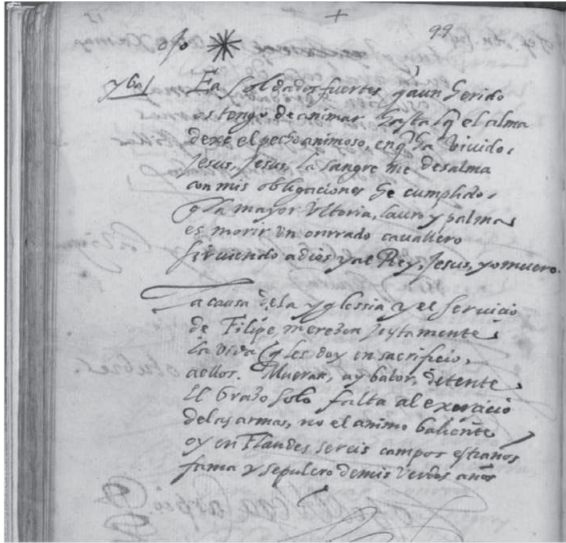 99
ojo
yba
Ea soldados fuertes q̃ aun herido
os tengo de animar hasta q̃ el alma
dexe el pecho animoso, en q̃ ha vivido.
Jesus, Jesus, la sangre me desalma
con mis obligaciones he cumplido.
q̃ la mayor vitoria, lauro y palma
es morir un onrrado cavallero
sirviendo a dios y al Rey, Jesus, yo muero.
La causa dela yglessia y el servicio
de Filipe merezen justamente
la vida q̃ les doy en sacrificio,
aellos. Mueran, ay balor, detente
El brazo solo falta al exercicio
delas armas, no el animo baliente
oy en Flandes sereis campos estraños
fama y sepulcro demis verdes años